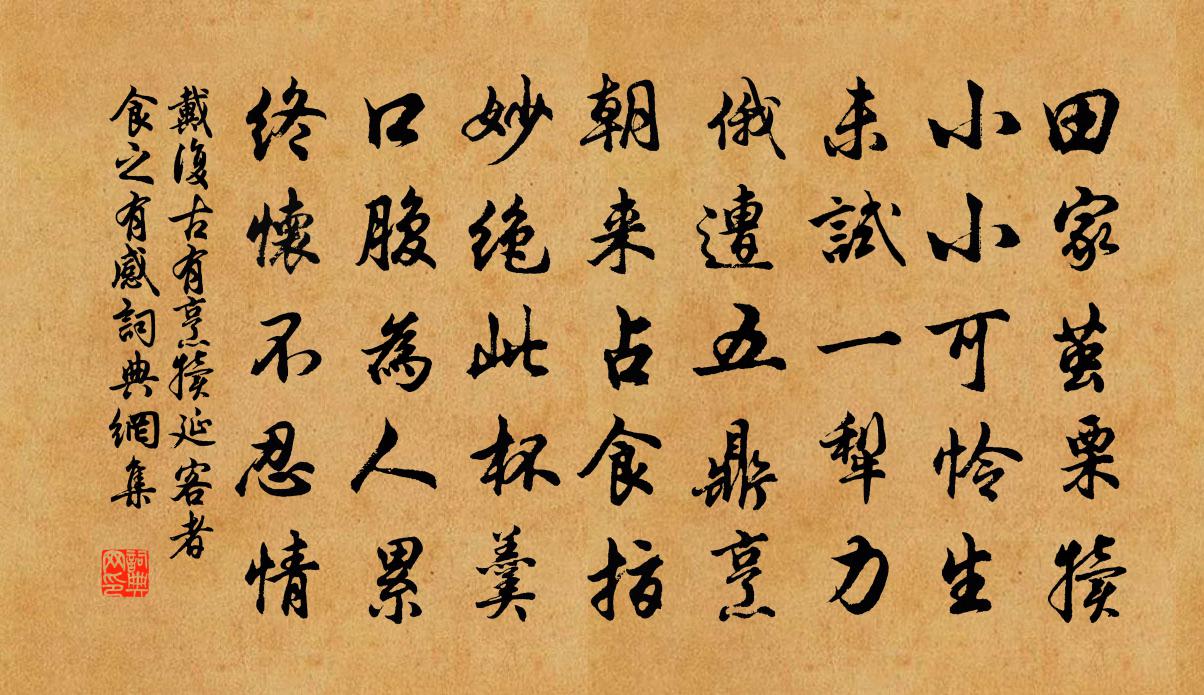 田家茧栗犢
小小可怜生
未試一犁力
俄遭五鼎烹
朝来占食指
妙绝此杯羹
口腹為人累
终懷不忍情
戴復古有烹犢延客者
食之有感詞典網集
詞典网印